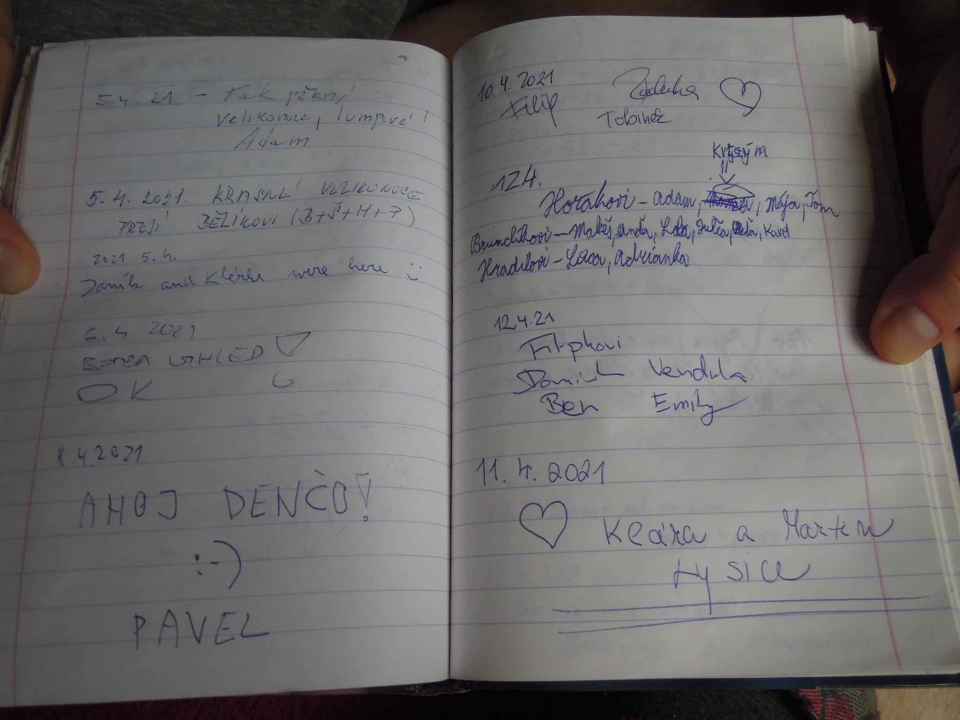 5.4.21 - Tak pěkný
velikonoce, lumpové!
Adam
5.4.2021 KRÁSNÉ VELIKONOCE
PŘEJÍ BĚLÍKOVI (B+Š+M+?)
2021 5.4.
Daník and Klárka were here :)
6.4 2021
VÝHLED
OK
8.4.2021
AHOJ DENČO!
:-)
PAVEL
10.4.2021
Filip Radurka ♡
Tobínek
12.4.
Horákovi - Adam, Mája, Tom
Brundíkovi - Matěj, Anča, Lola, Julča, Karel
Hradilovi - Adriánka
12.4.21
Filipkovi
Dominik Vendula
Ben Emily
11.4.2021
♡ Klára a Martin
Lysice